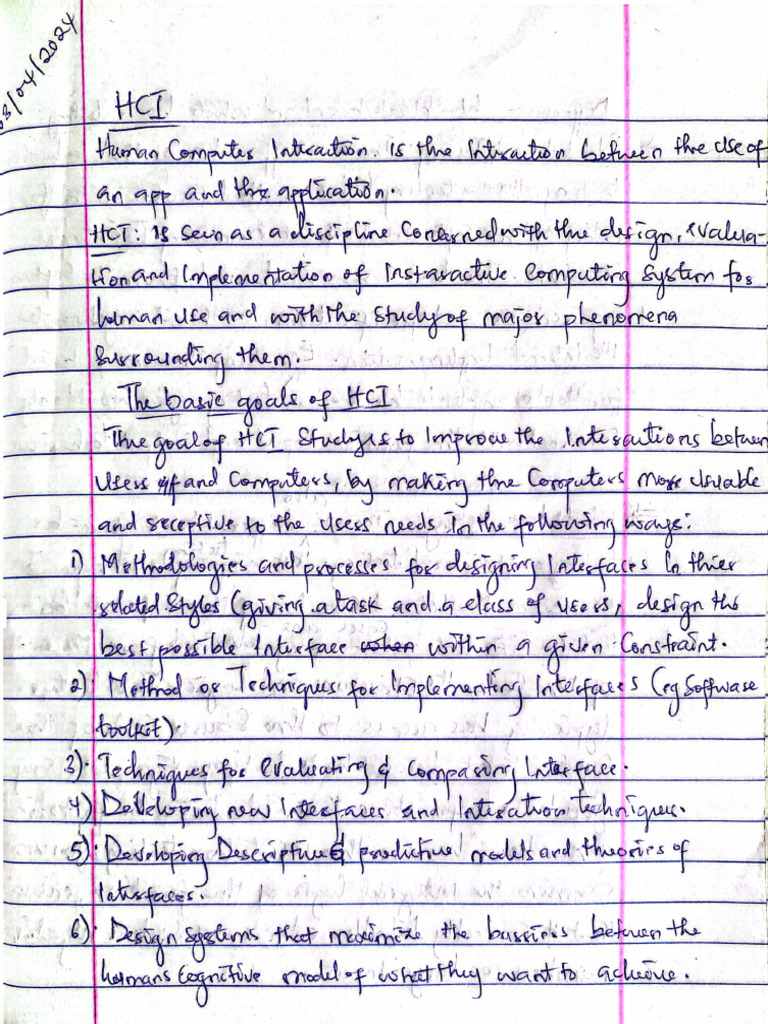 03/04/2024
HCI
Human Computer Interaction. is the Interaction between the Use of
an app and the application.
HCI: is seen as a discipline Concerned with the design, evalua-
tion and Implementation of Interactive Computing System for
human use and with the study of major phenomena
surrounding them.
The basic goals of HCI
The goal of HCI Study is to Improve the Interactions between
Users and Computers, by making the Computers more Usuable
and receptive to the Users needs In the following ways:
1) Methodologies and processes for designing Interfaces In thier
related Styles (giving a task and a class of users, design the
best possible Interface within a given Constraint.
2) Method or Techniques for Implementing Interfaces (eg Software
toolkit).
3) Techniques for evaluating & Comparing Interface.
4) Developing new Interfaces and Interation techniques.
5) Developing Descriptive & predictive models and theories of
Interfaces.
6) Design Systems that the between the
humans Cognitive model of what they want to achieve.